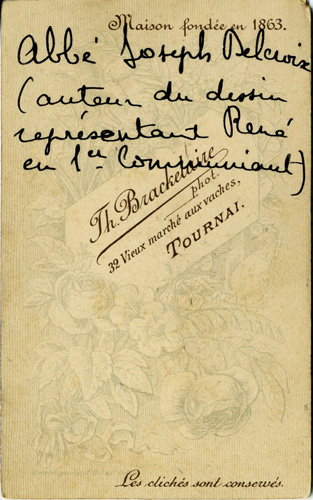 Maison fondée en 1863.
Abbé Joseph Delcroix
(auteur du dessin
représentant René
en 1er Communiant)
Th. Brackelaire
phot.
32 Vieux marché aux vaches,
TOURNAI.
Les clichés sont conservés.